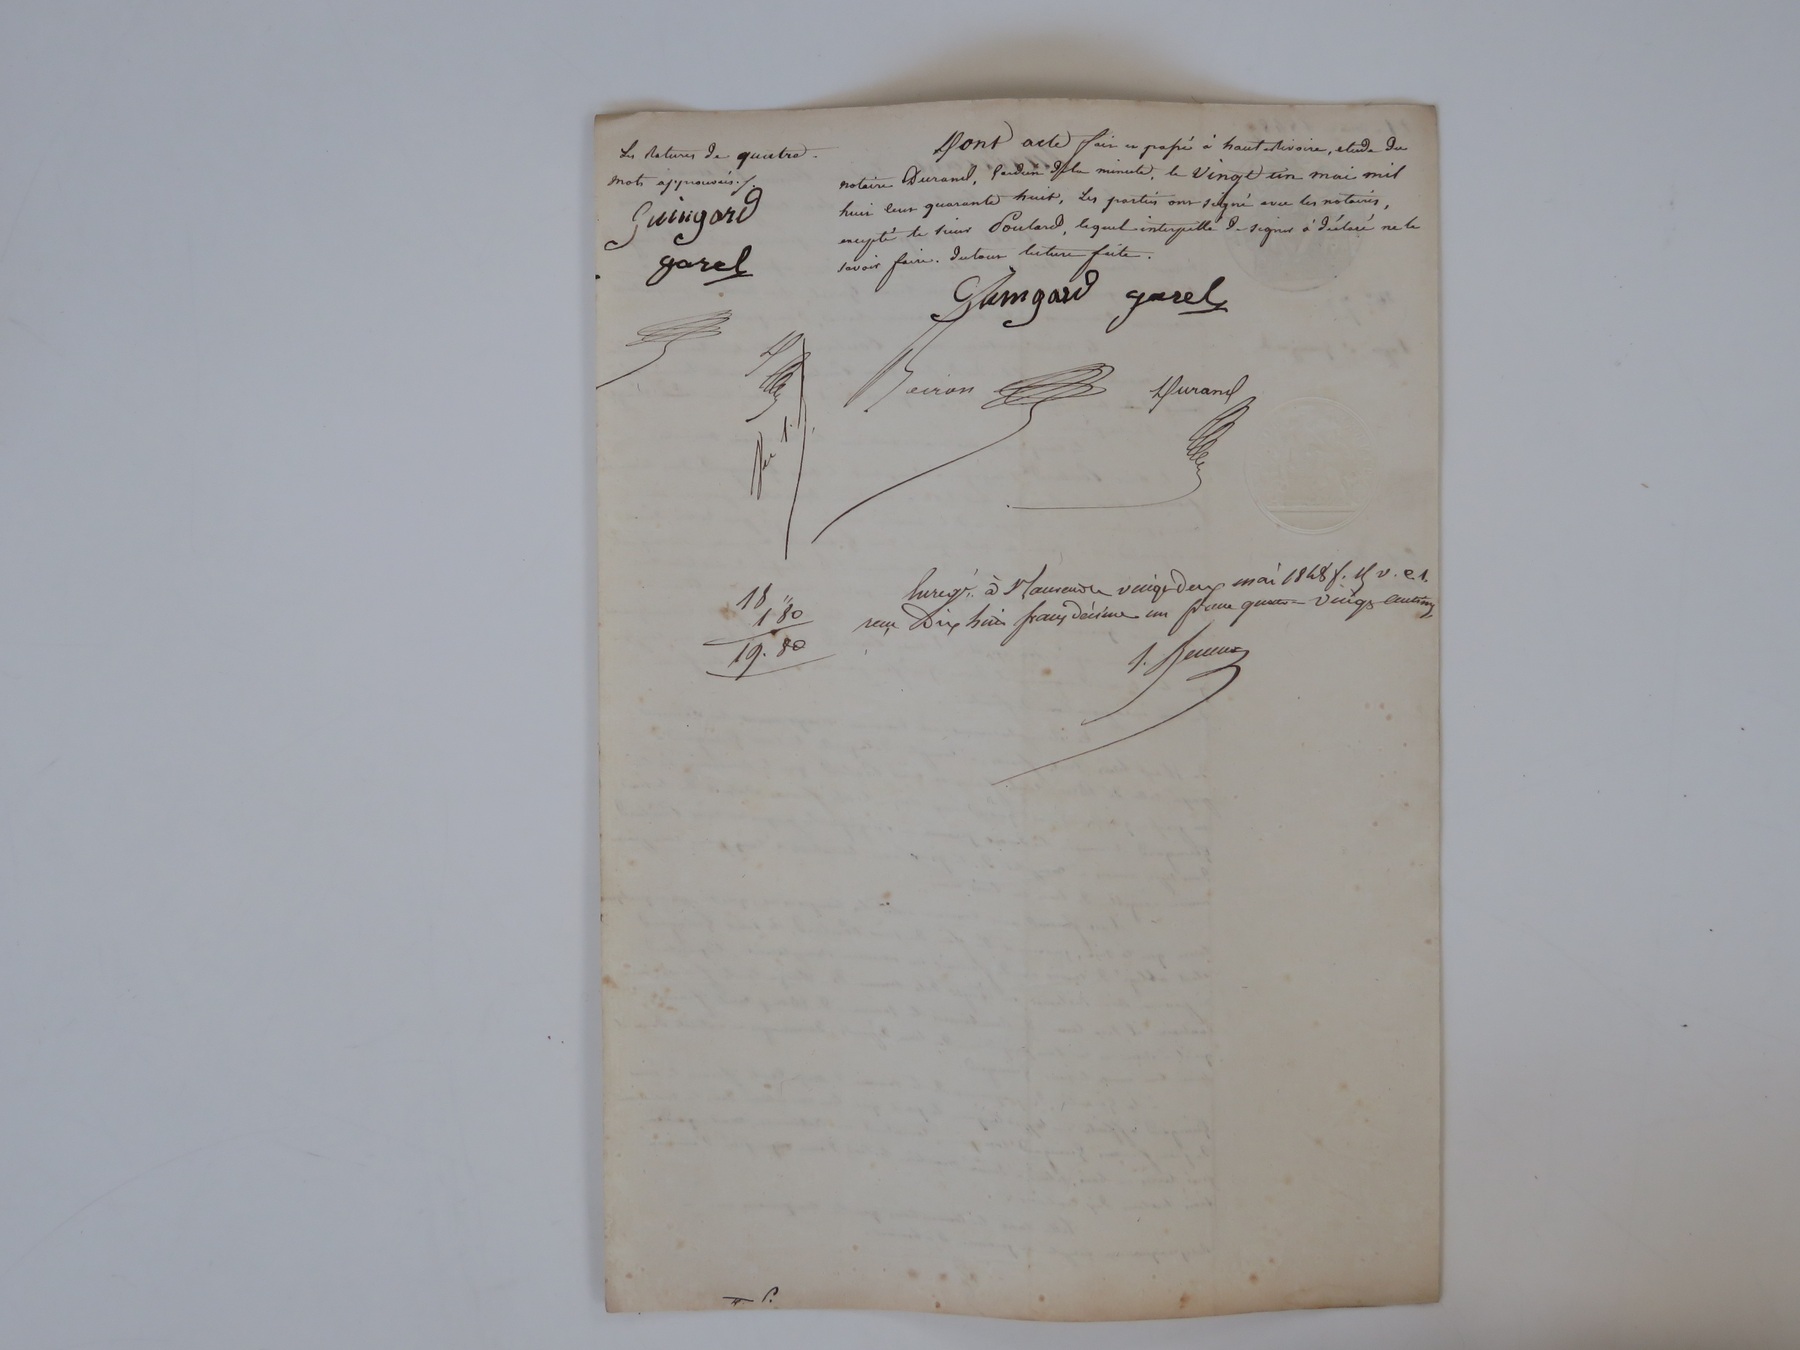 Les ratures de quatre
mots approuvées.
Guingard
garel
Dont acte fait et passé à haute-Rivoire, etude du
notaire Durand, l'un d'eux de la minute, le Vingt un mai mil
huit cent quarante huit, Les parties ont signé avec les notaires,
excepté le sieur Poulard, lequel interpellé de signer a déclaré ne le
savoir faire. du tout lecture faite.
Guingard garel
Durand
18 "
1 80
19. 80
Enregé. à vingt deux mai 1848 f. v. c. 1.
reçu Dix huit francs décime un franc quatre vingt centimes